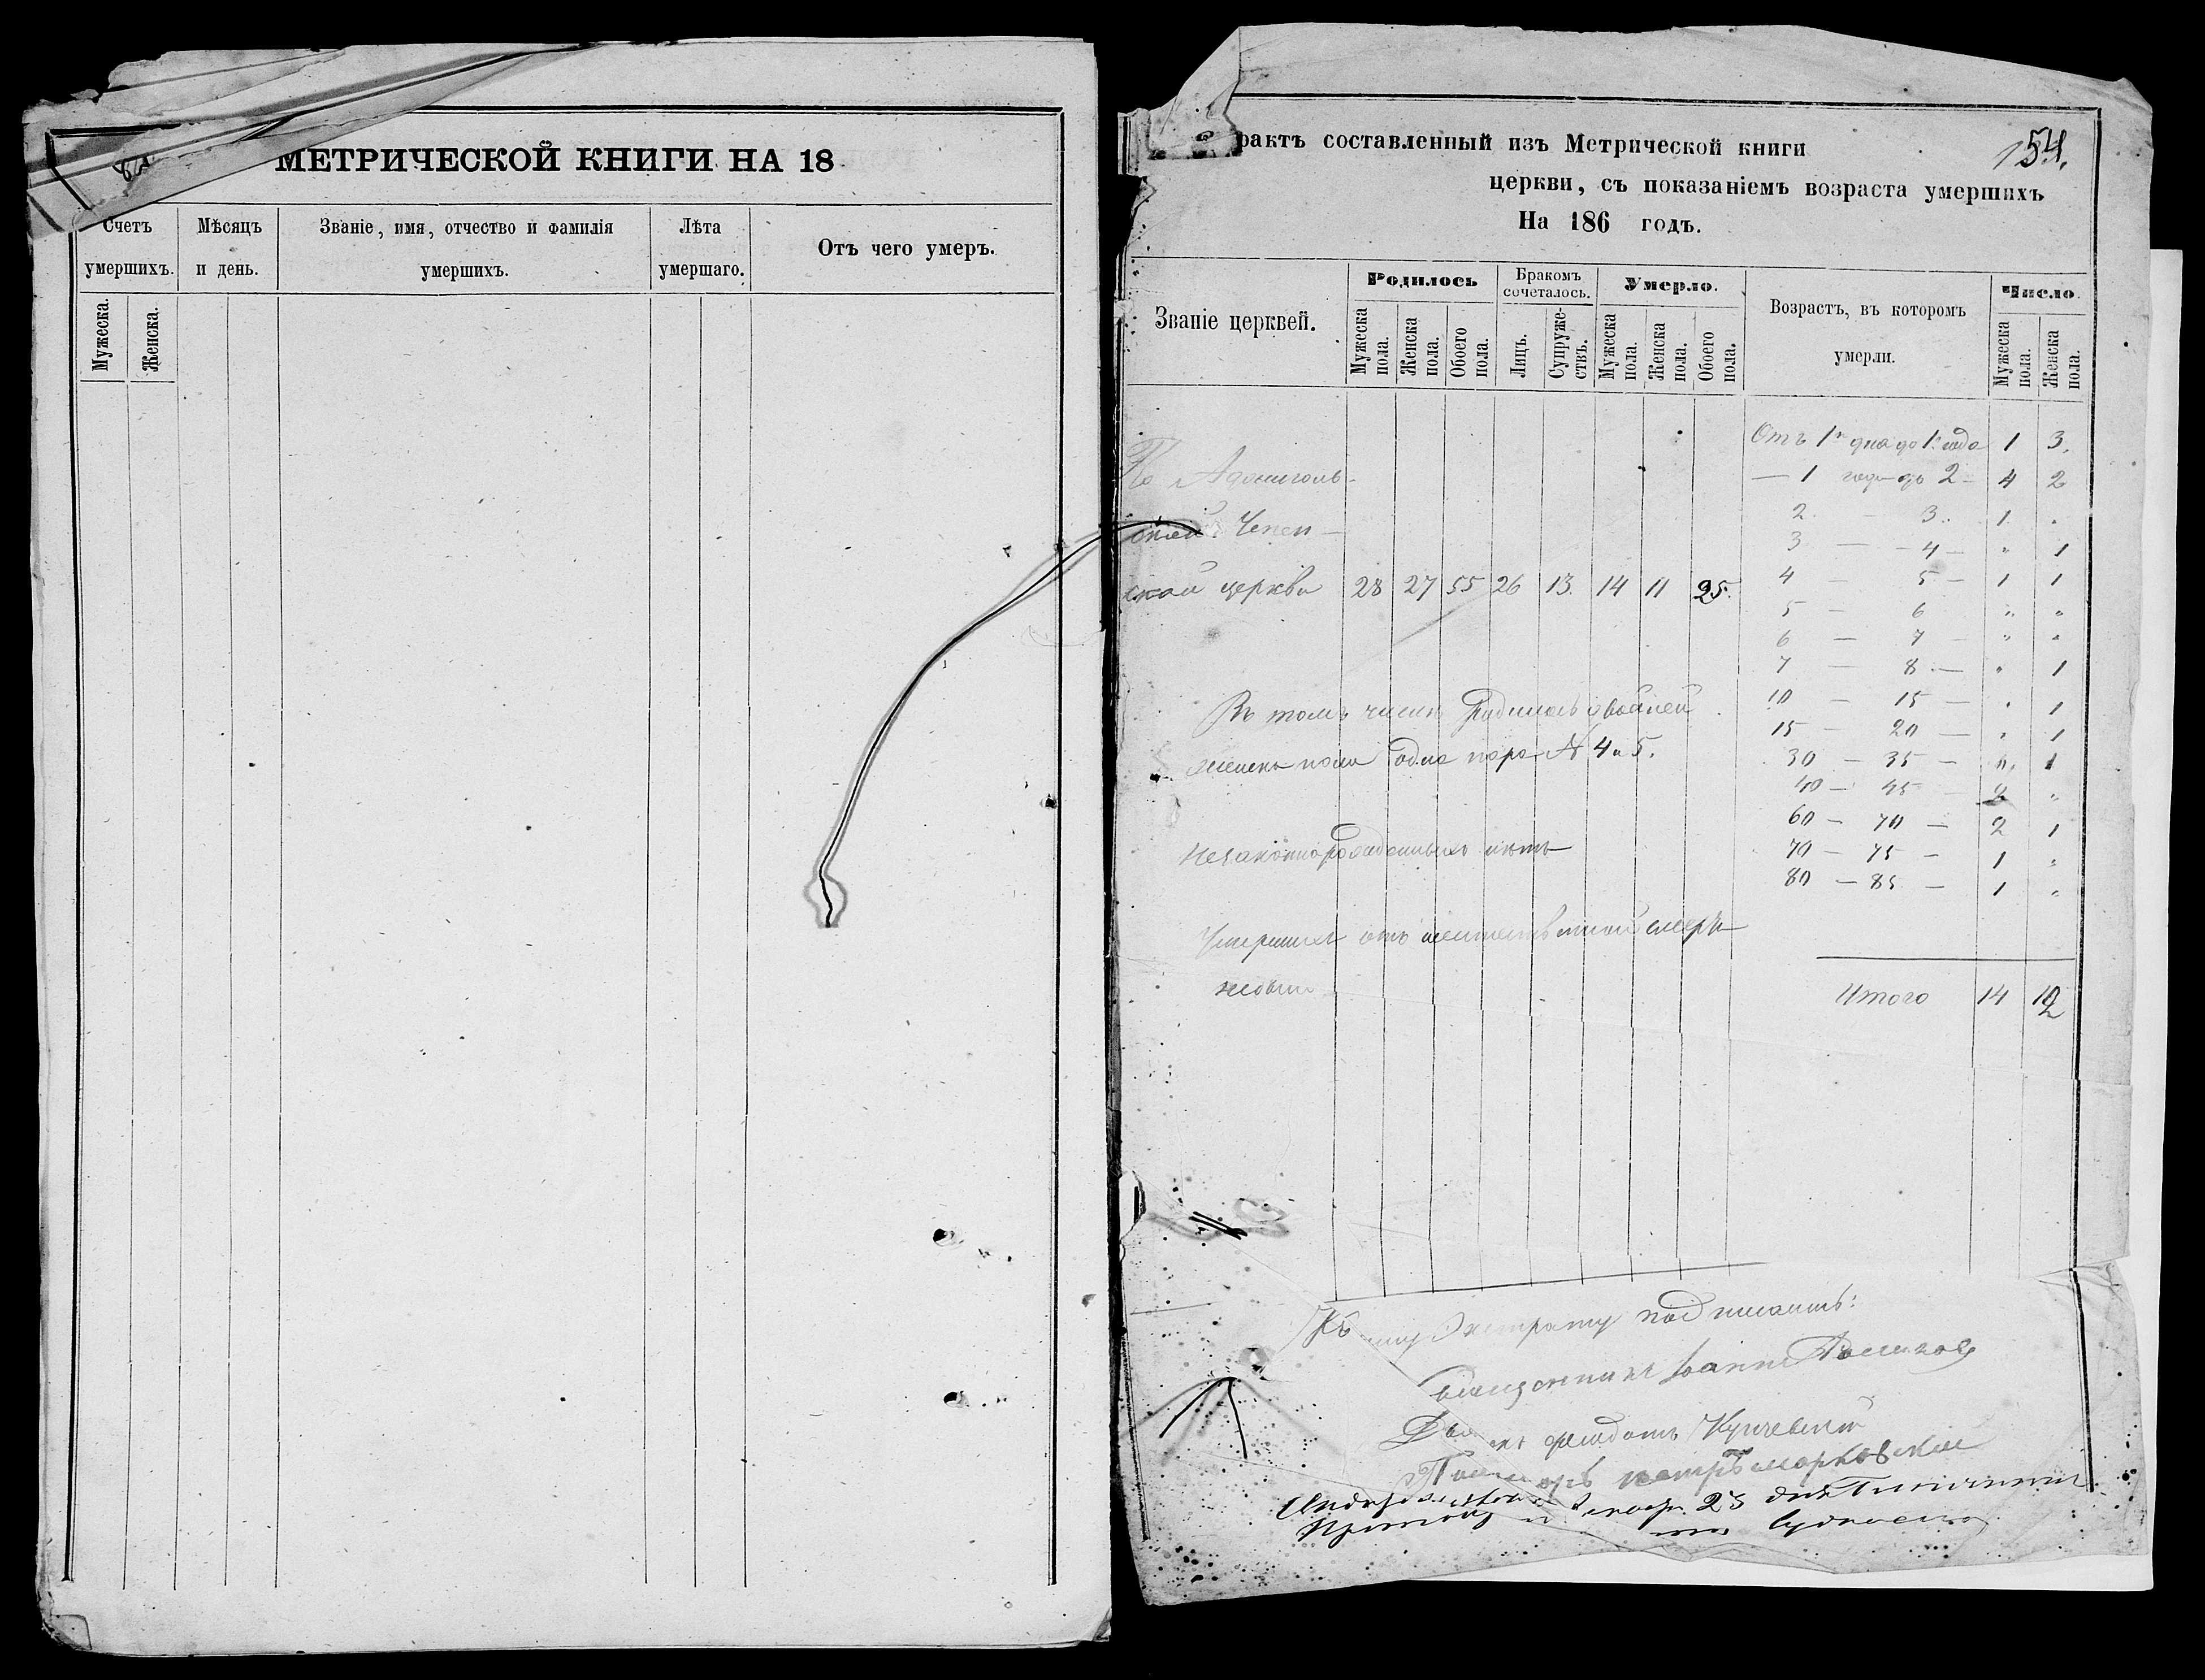 МЕТРИЧЕСКОЙ КНИГИ НА 18
Счетъ умершихъ.
Мужеска.
Женска.
Мѣсяцъ и день.
Званіе, имя, отчество и фамилія умершихъ.
Лѣта умершаго.
Отъ чего умеръ.
154.
рактъ составленный изъ Метрической книги
церкви, съ показаніемъ возраста умершихъ
На 186 годъ.
Званіе церквей.
Родилось
Мужеска пола.
Женска пола.
Обоего пола.
Бракомъ сочеталось.
Лицъ.
Супружествъ.
Умерло.
Мужеска пола.
Женска пола.
Обоего пола.
Возрастъ, въ которомъ умерли.
Число
Мужеска пола.
Женска пола.
По
ской церкви 28 27 55 26 13. 14 11 25.
Въ томъ числѣ родилось двойней
женска пола одна пара № 4 и 5.
Незаконнорожденныхъ нѣтъ
Умершихъ отъ
небыло
Отъ 1 дня до 1 года 1 3.
— 1 года до 2 — 4 2
2. — 3.. 1. .
3 — 4 — " 1
4 — 5 — 1 1
5 — 6 " "
6 — 7 — " "
7 — 8 — " 1
10 — 15 — " 1
15 — 20 — " 1
30 — 35 — " 1
40 — 45 — 2 "
60 — 70 — 2 1
70 — 75 — 1 "
80 — 85 — 1 "
Итого 14 12
Къ
Священникъ Іоаннъ
Петръ
23 дня